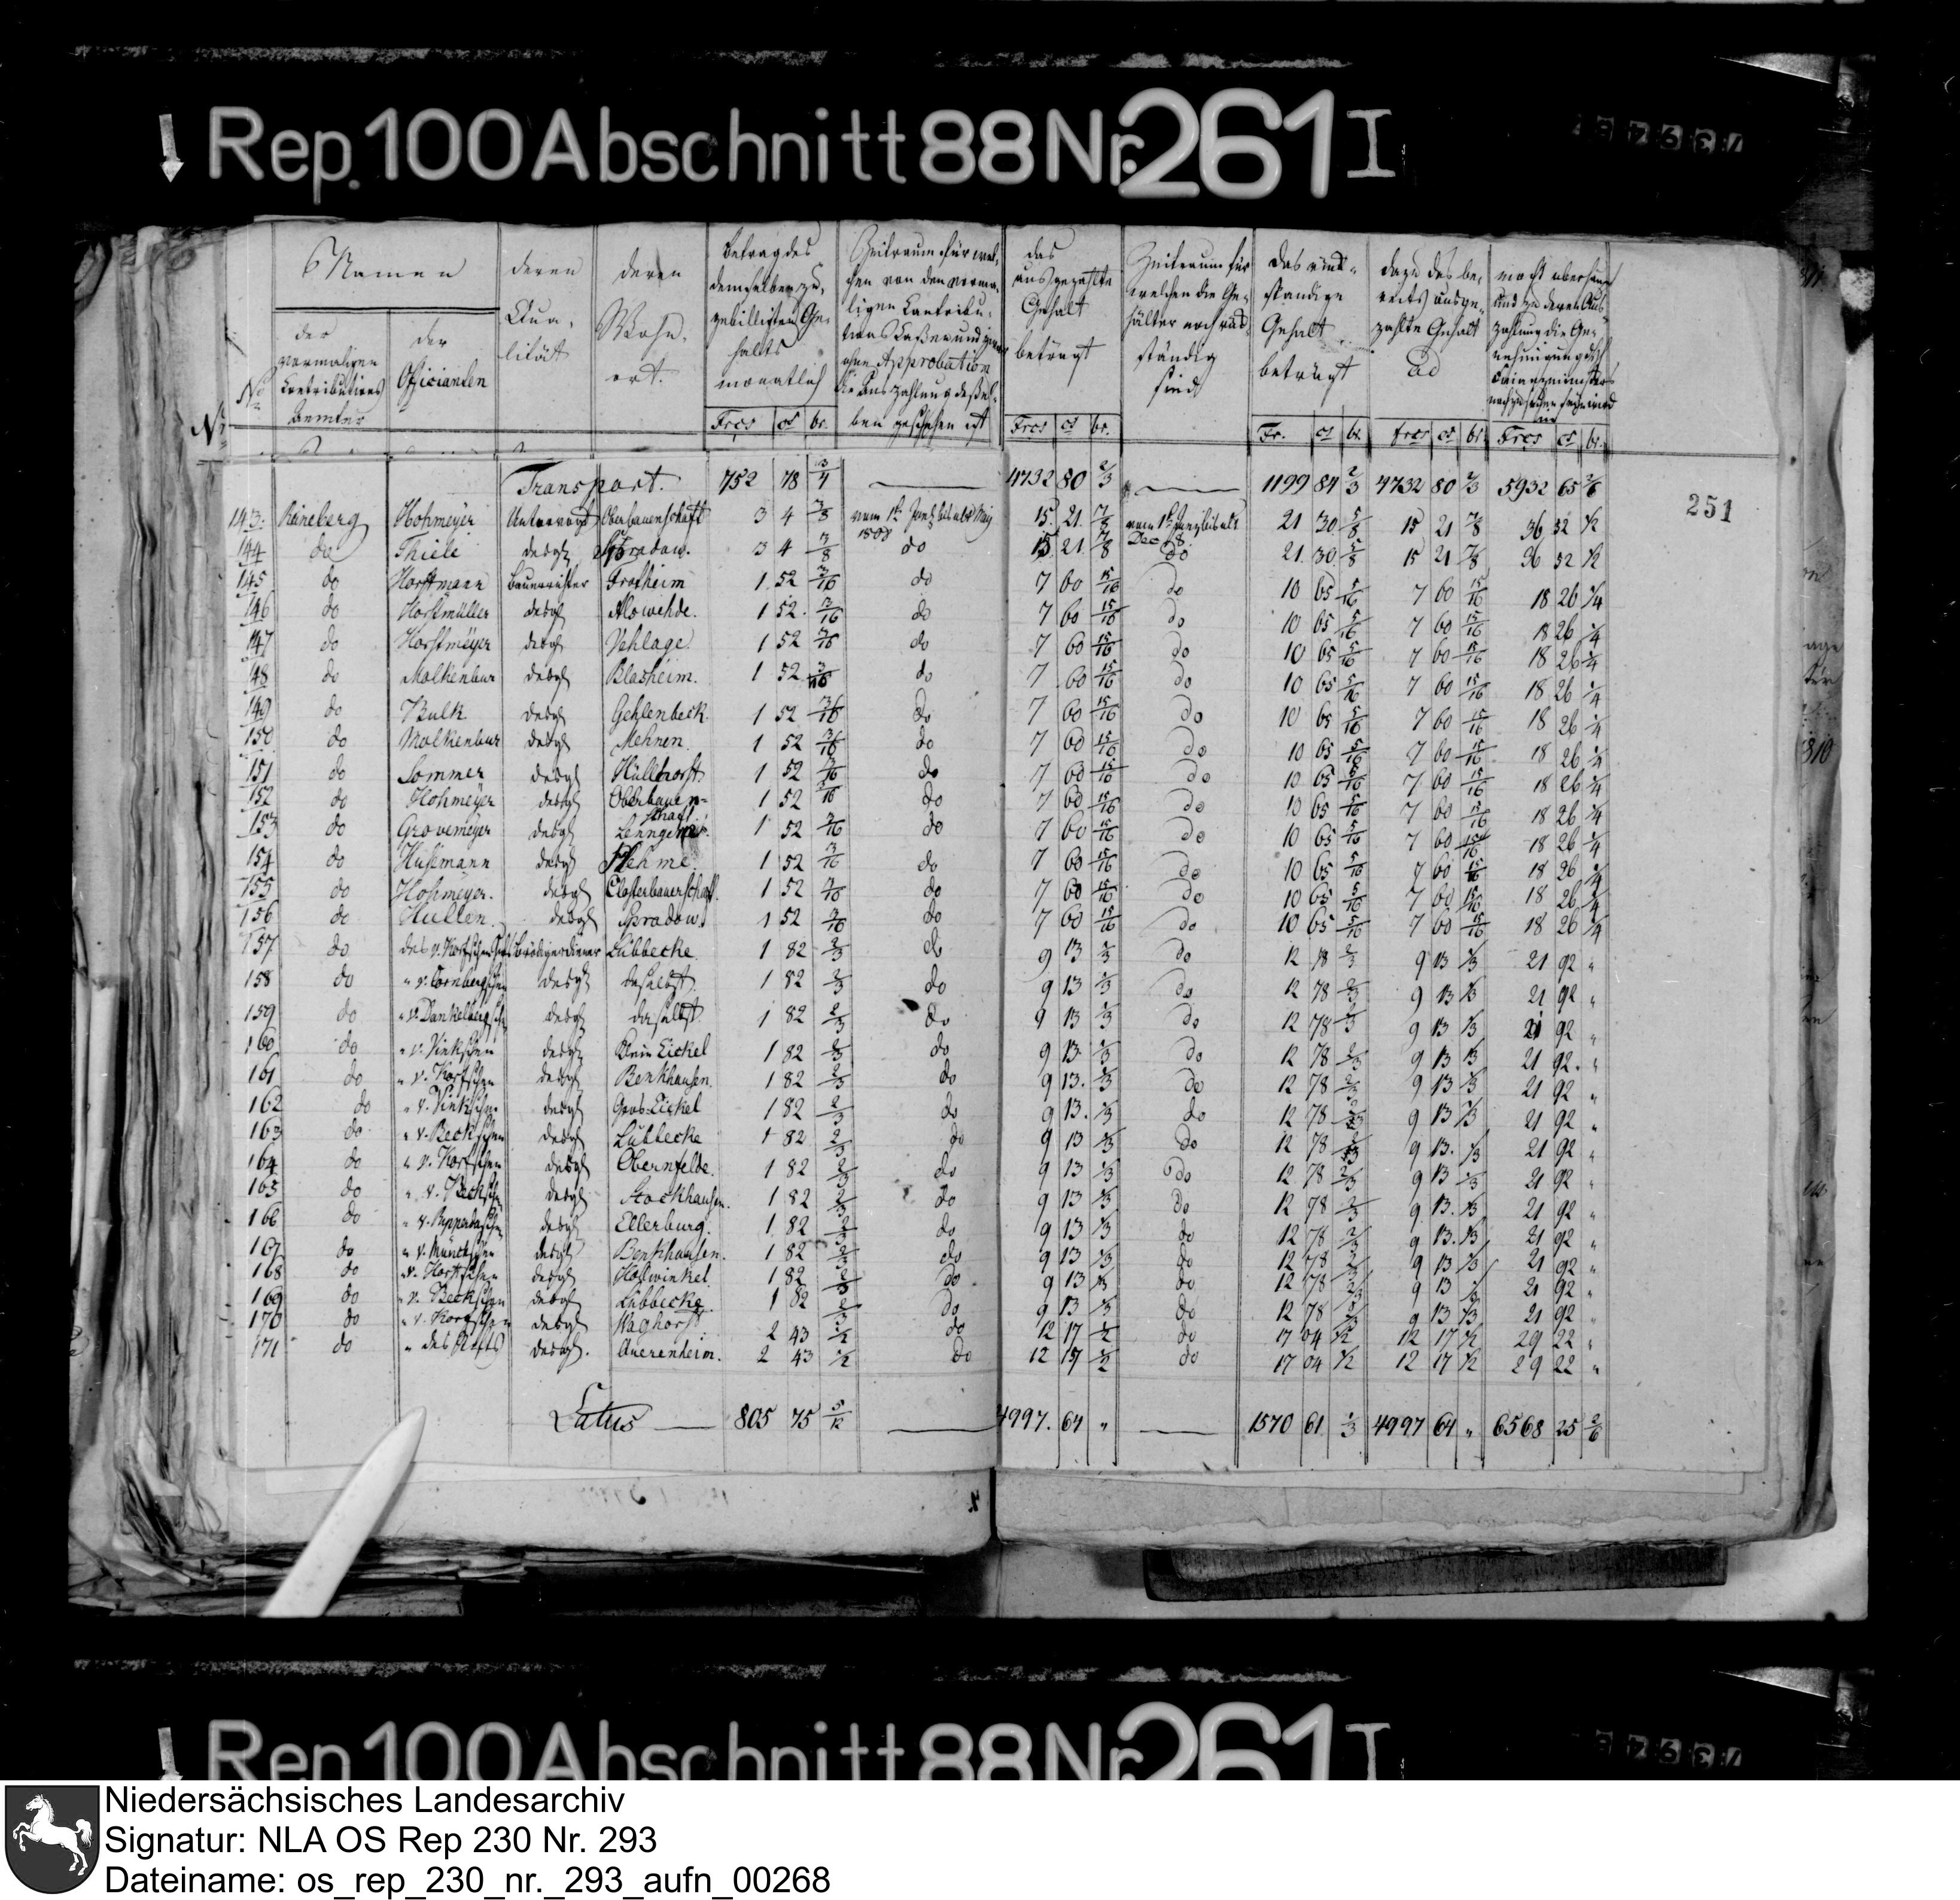 Rep. 100 Abschnitt 88 Nr. 261 I
Namen
der vermaligen Contributions Aemter
der Officianten
deren Qualität
deren Wohnort.
Betrag des demselben zugebilligten Gehalts monatlich
Zeitraum für welchen von den vormaligen Contributions Kaßen und zwar ohne Approbation die Auszahlung deßelben geschehen ist
das ausgezahlte Gehalt beträgt
Zeitraum für welchen die Gehälter noch rückständig sind
das rückständige Gehalt beträgt
dazu das bereits ausgezahlte Gehalt ad
macht überhaupt und zu deren Auszahlung die Genehmigung des Finanzministers
No
Frcs cs br. Frcs cs br. Fr. cs br. frcs cs br. Frcs cs br.
Transport. 752 78 3/4 — 4732 80 2/3 — 1199 84 2/3 4732 80 2/3 5932 65 2/6
251
143. Reineberg Hohmeyer Untervogt Oberbauerschaft 3 4 3/8 vom 1ten Janr bis ult May 1808 15 21 7/8 vom 1t Juny bis ult Dec 8 21 30 5/8 15 21 7/8 36 52 1/2
144 do Thiele desgl Spradow. 3 4 3/8 do 15 21 7/8 do 21 30 5/8 15 21 7/8 36 52 1/2
145 do Horstmann Bauerrichter Frotheim 1 52 3/16 do 7 60 15/16 do 10 65 5/16 7 60 15/16 18 26 1/4
146 do Horstmüller desgl Alswehde. 1 52 3/16 do 7 60 15/16 do 10 65 5/16 7 60 15/16 18 26 1/4
147 do Horstmeyer desgl Vehlage 1 52 3/16 do 7 60 15/16 do 10 65 5/16 7 60 15/16 18 26 1/4
148 do Molkenbur desgl Blasheim. 1 52 3/16 do 7 60 15/16 do 10 65 5/16 7 60 15/16 18 26 1/4
149 do Bulk desgl Gehlenbeck. 1 52 3/16 do 7 60 15/16 do 10 65 5/16 7 60 15/16 18 26 1/4
150 do Molkenbur desgl Mehnen. 1 52 3/16 do 7 60 15/16 do 10 65 5/16 7 60 15/16 18 26 1/4
151 do Sommer desgl Hüllhorst 1 52 3/16 do 7 60 15/16 do 10 65 5/16 7 60 15/16 18 26 1/4
152 do Hohmeyer desgl Oberbauerschaft 1 52 3/16 do 7 60 15/16 do 10 65 5/16 7 60 15/16 18 26 1/4
153 do Grovemeyer desgl 1 52 3/16 do 7 60 15/16 do 10 65 5/16 7 60 15/16 18 26 1/4
154 do Husemann desgl Rehme 1 52 3/16 do 7 60 15/16 do 10 65 5/16 7 60 15/16 18 26 1/4
155 do Hohmeyer. desgl Closterbauerschaft. 1 52 3/16 do 7 60 15/16 do 10 65 5/16 7 60 15/16 18 26 1/4
156 do Hullen desgl Spradow. 1 52 3/16 do 7 60 15/16 do 10 65 5/16 7 60 15/16 18 26 1/4
157 do des v. Korfschen Lübbecke. 1 82 2/3 do 9 13 1/3 do 12 78 2/3 9 13 1/3 21 92 "
158 do " v. Cornbergschen desgl daselbst 1 82 2/3 do 9 13 1/3 do 12 78 2/3 9 13 1/3 21 92 "
159 do desgl daselbst 1 82 2/3 do 9 13 1/3 do 12 78 2/3 9 13 1/3 21 92 "
160 do " v. Vinkschen desgl Klein Eickel 1 82 2/3 do 9 13 1/3 do 12 78 2/3 9 13 1/3 21 92 "
161 do " v. Korfschen desgl Benkhausen. 1 82 2/3 do 9 13 1/3 do 12 78 2/3 9 13 1/3 21 92 "
162 do " v. Vinkschen desgl Gros Eickel 1 82 2/3 do 9 13 1/3 do 12 78 2/3 9 13 1/3 21 92 "
163 do " v. Beckschen desgl Lübbecke 1 82 2/3 do 9 13 1/3 do 12 78 2/3 9 13 1/3 21 92 "
164 do " v. Korfschen desgl Obernfelde. 1 82 2/3 do 9 13 1/3 do 12 78 2/3 9 13 1/3 21 92 "
165 do " v. Beckschen desgl Stockhausen. 1 82 2/3 do 9 13 1/3 do 12 78 2/3 9 13 1/3 21 92 "
166 do desgl Ellerburg. 1 82 2/3 do 9 13 1/3 do 12 78 2/3 9 13 1/3 21 92 "
167 do " v. Münchschen desgl Benkhausen. 1 82 2/3 do 9 13 1/3 do 12 78 2/3 9 13 1/3 21 92 "
168 do desgl Holwinkel. 1 82 2/3 do 9 13 1/3 do 12 78 2/3 9 13 1/3 21 92 "
169 do " v. Beckschen desgl Lübbecke 1 82 2/3 do 9 13 1/3 do 12 78 2/3 9 13 1/3 21 92 "
170 do " v. Korfschen desgl Waghorst 2 43 1/2 do 12 17 1/2 do 17 04 1/2 12 17 1/2 29 22 "
171 do " des Stifts desgl. Querenheim. 2 43 1/2 do 12 17 1/2 do 17 04 1/2 12 17 1/2 29 22 "
Latus — 805 75 5/12 — 4997. 64 " — 1570 61 1/3 4997 64 " 6568 25 2/6
Rep 100 Abschnitt 88 Nr. 261 I
Niedersächsisches Landesarchiv
Signatur: NLA OS Rep 230 Nr. 293
Dateiname: os_rep_230_nr._293_aufn_00268